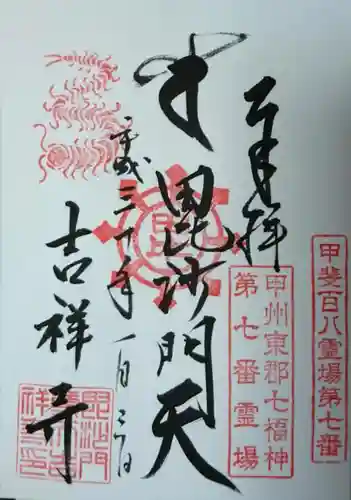 甲斐百八霊場第七番
甲州東郡七福神
第七番霊場
奉拝
毘沙門天
平成三十年一月二日
吉祥寺
毘沙門